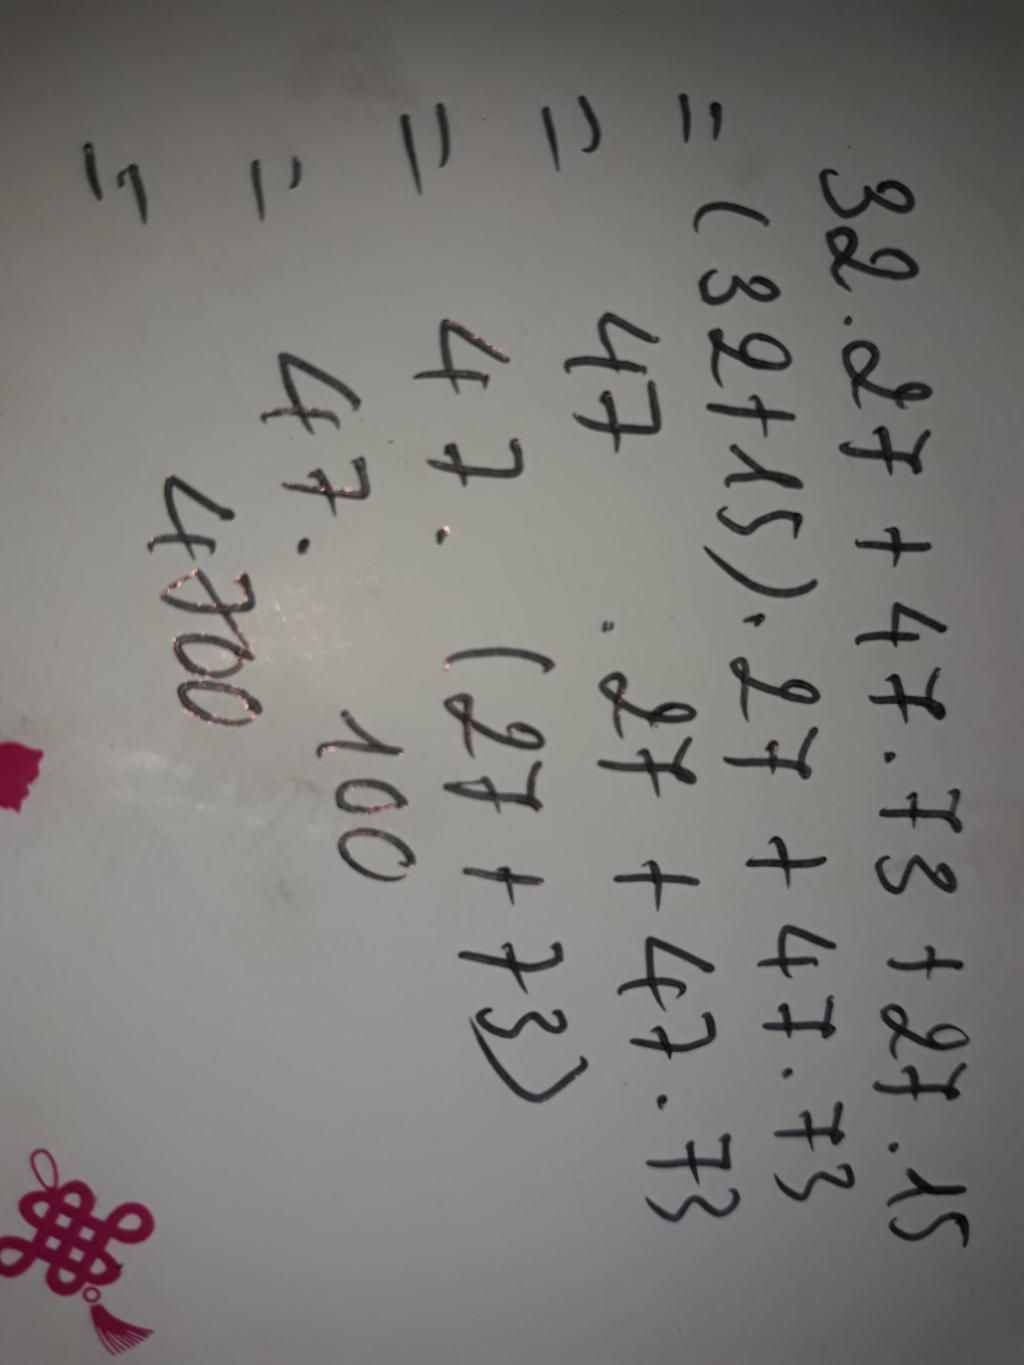 32.27 + 47.73 + 27.15
= (32+15).27 + 47.73
= 47 .27 + 47.73
= 47. (27 + 73)
= 47. 100
= 4700